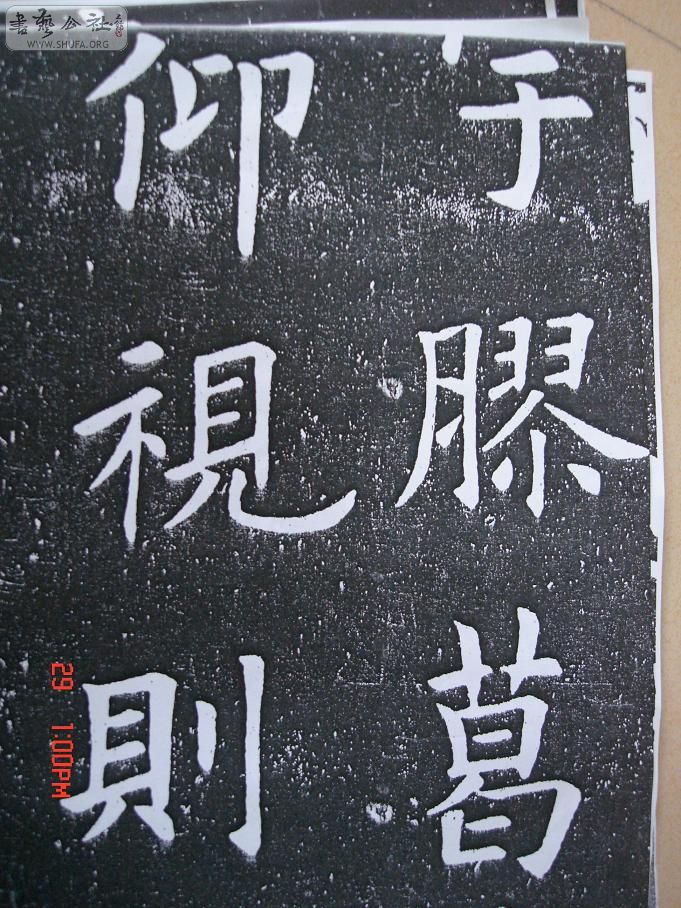 于膠葛
仰視則
書藝公社
WWW.SHUFA.ORG
29 1:00PM